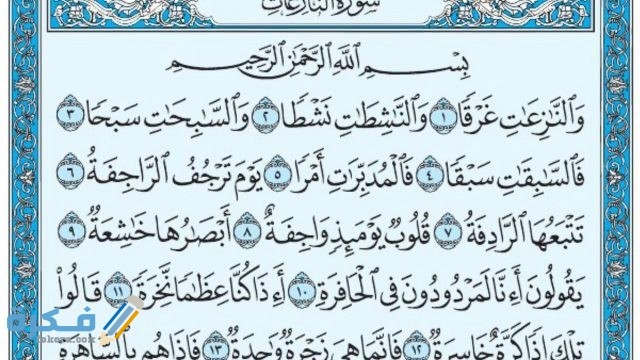 سُورَةُ النَّازِعَاتِ
بِسْمِ اللَّهِ الرَّحْمَٰنِ الرَّحِيمِ
وَالنَّازِعَاتِ غَرْقًا ١ وَالنَّاشِطَاتِ نَشْطًا ٢ وَالسَّابِحَاتِ سَبْحًا ٣
فَالسَّابِقَاتِ سَبْقًا ٤ فَالْمُدَبِّرَاتِ أَمْرًا ٥ يَوْمَ تَرْجُفُ الرَّاجِفَةُ ٦
تَتْبَعُهَا الرَّادِفَةُ ٧ قُلُوبٌ يَوْمَئِذٍ وَاجِفَةٌ ٨ أَبْصَارُهَا خَاشِعَةٌ ٩
يَقُولُونَ أَءِنَّا لَمَرْدُودُونَ فِي الْحَافِرَةِ ١٠ أَءِذَا كُنَّا عِظَامًا نَّخِرَةً ١١ قَالُوا
تِلْكَ إِذًا كَرَّةٌ خَاسِرَةٌ ١٢ فَإِنَّمَا هِيَ زَجْرَةٌ وَاحِدَةٌ ١٣ فَإِذَا هُم بِالسَّاهِرَةِ
فكرة